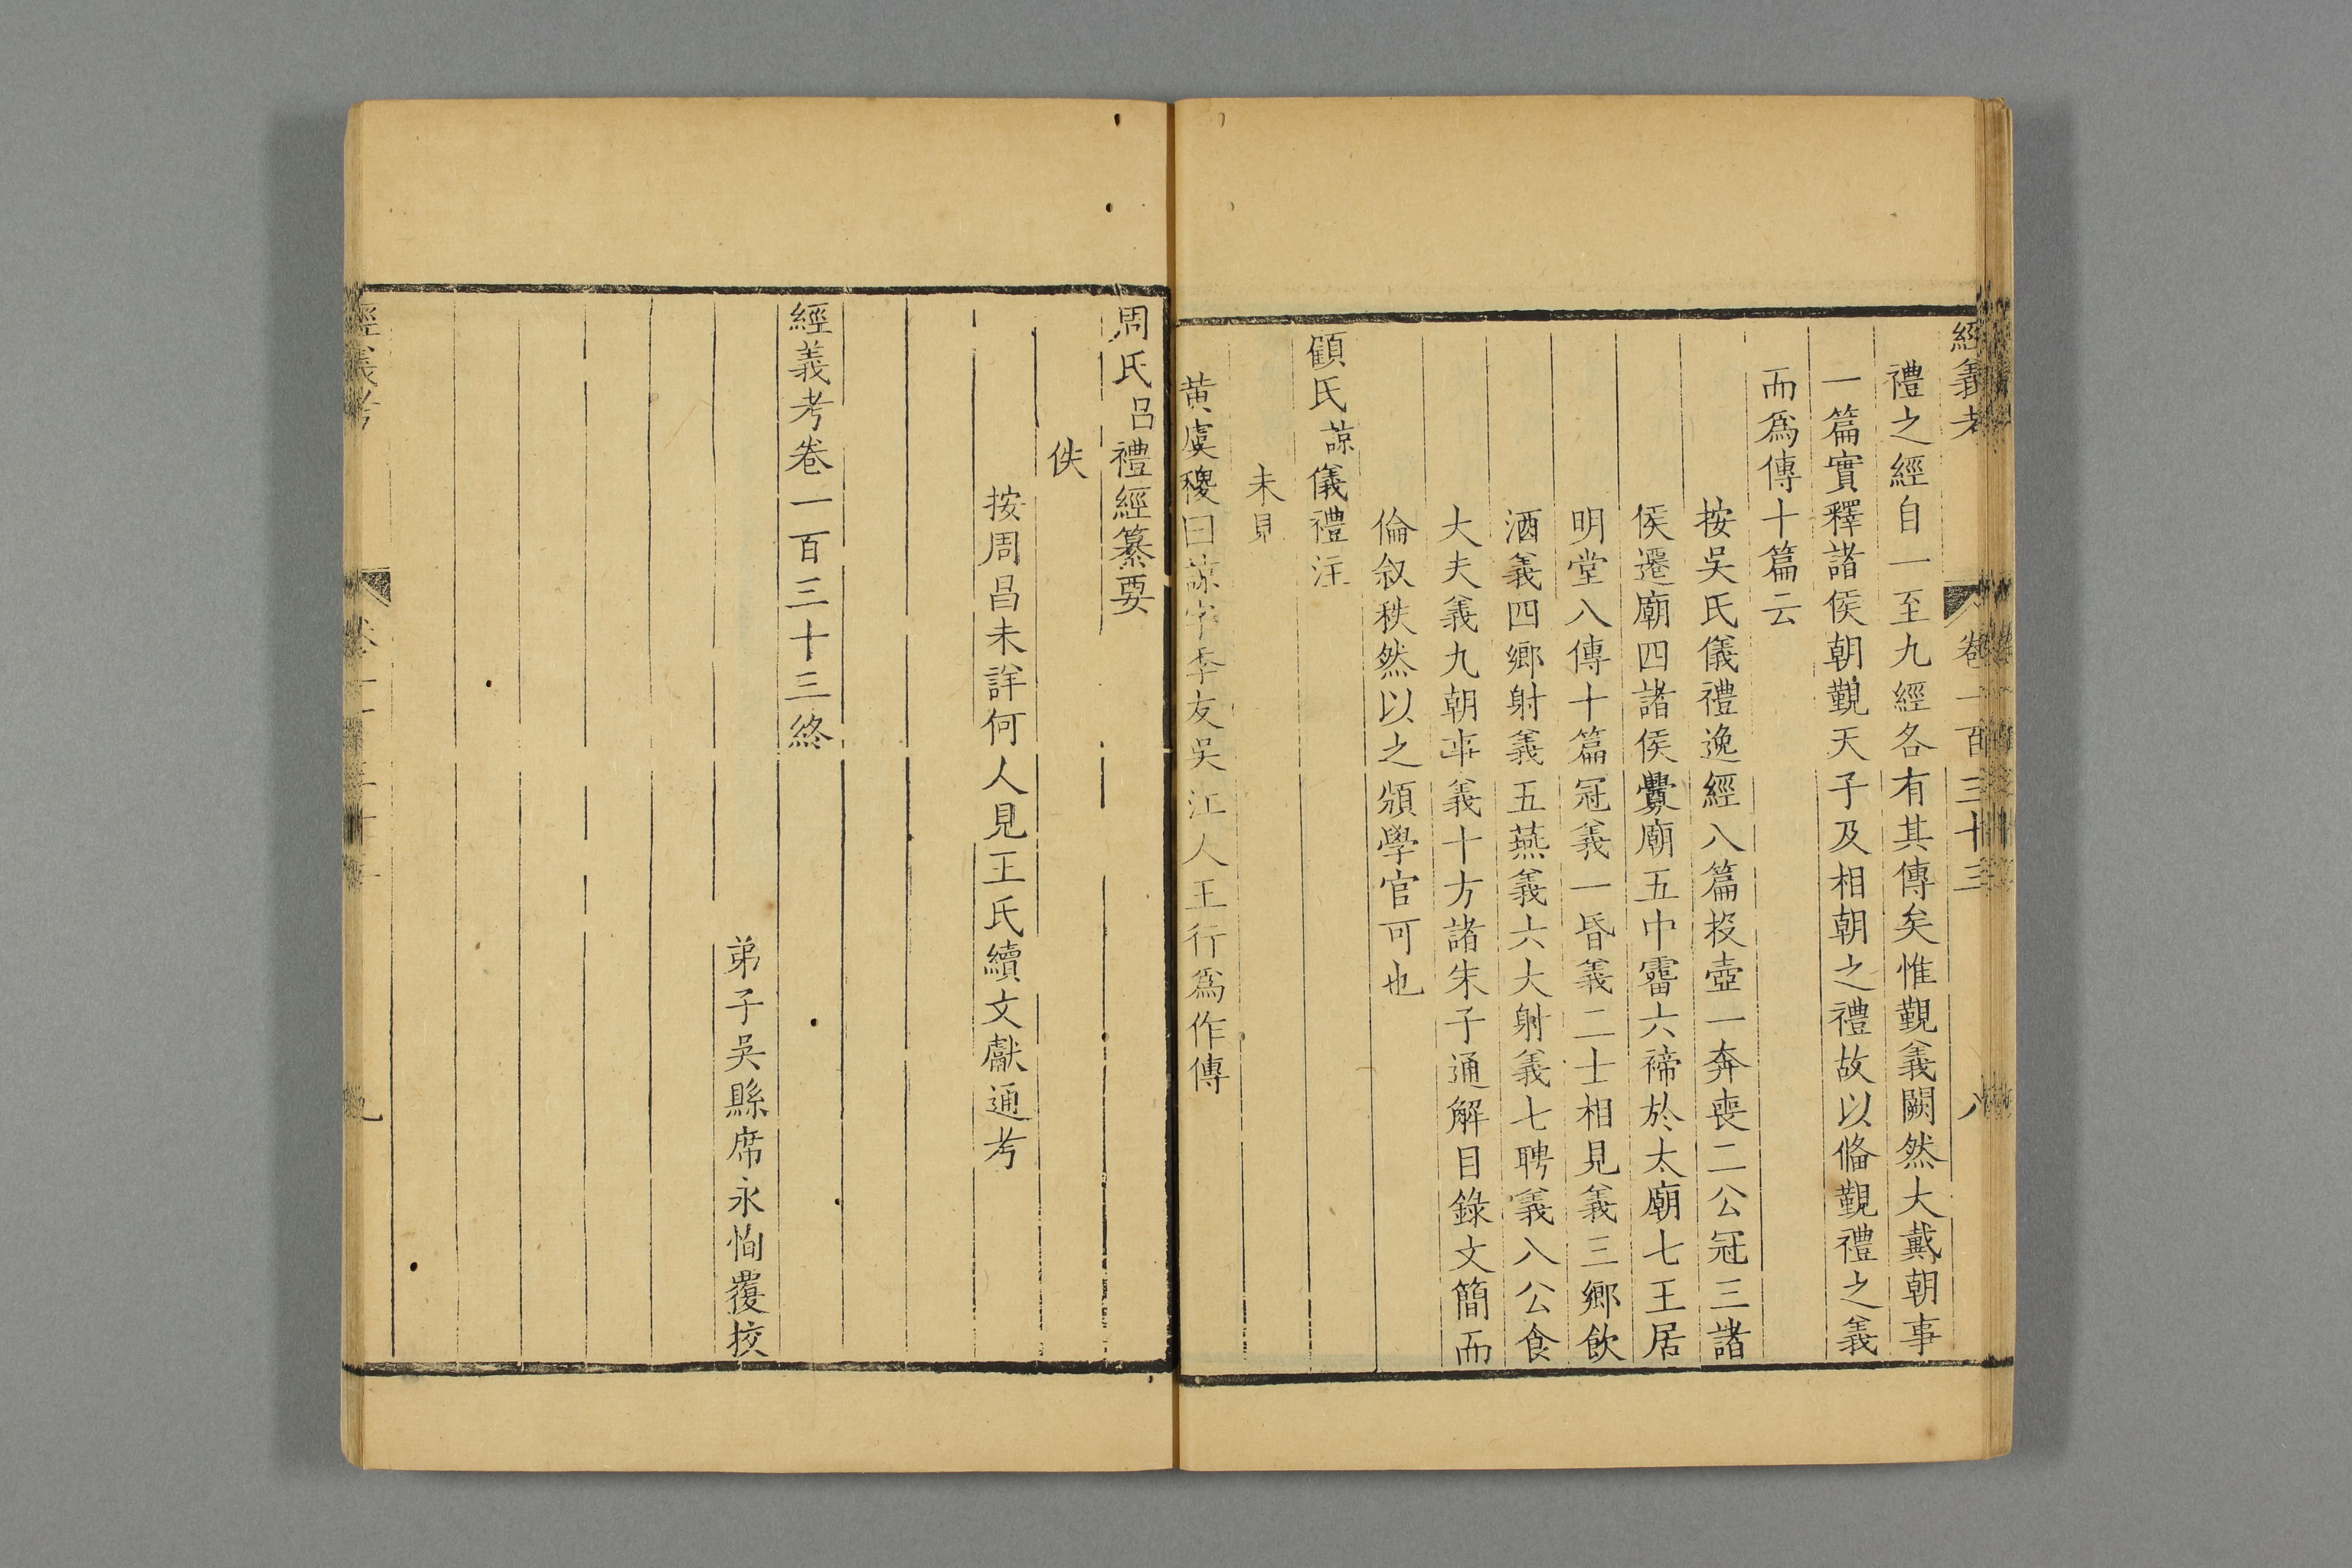 經義考 卷一百三十三 八
禮之經自一至九經各有其傳矣惟覲義闕然大戴朝事
一篇實釋諸侯朝覲天子及相朝之禮故以俻覲禮之義
而爲傳十篇云
按吳氏儀禮逸經八篇投壺一奔喪二公冠三諸
侯遷廟四諸侯釁廟五中霤六禘於太廟七王居
明堂八傳十篇冠義一昏義二士相見義三鄉飲
酒義四鄉射義五燕義六大射義七聘義八公食
大夫義九朝事義十方諸朱子通解目錄文簡而
倫叙秩然以之頒學官可也
顧氏諒儀禮注
未見
黃虞稷曰諒字季友吳江人王行爲作傳
周氏昌禮經纂要
佚
按周昌未詳何人見王氏續文獻通考
經義考卷一百三十三終
弟子吳縣席永恂覆挍
經義考 卷一百三十三 九